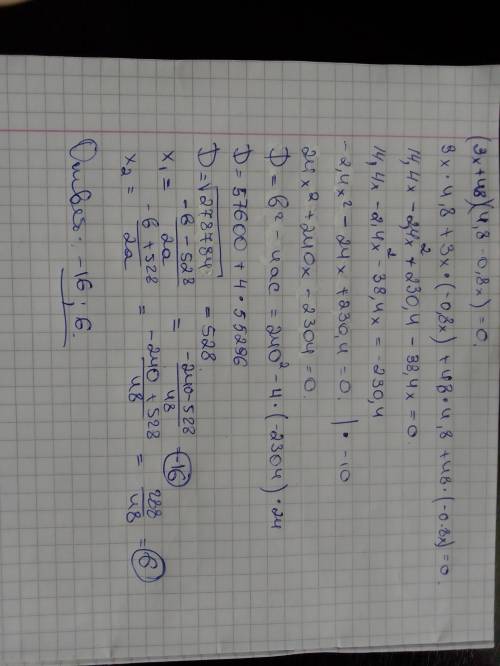 (3x+48)(4,8-0,8x)=0.
3x·4,8+3x·(-0,8x)+48·4,8+48·(-0.8x)=0.
14,4x-2,4x²+230,4-38,4x=0.
14,4x-2,4x²-38,4x=-230,4
-2,4x²-24x+230,4=0. |·-10
24x²+240x-2304=0.
D=b²-4ac=240²-4·(-2304)·24
D=57600+4·55296
D=√278784=528.
x₁=(-b-528)/2a=(-240-528)/48=-16
x₂=(-b+528)/2a=(-240+528)/48=288/48=6
Ответ: -16; 6.